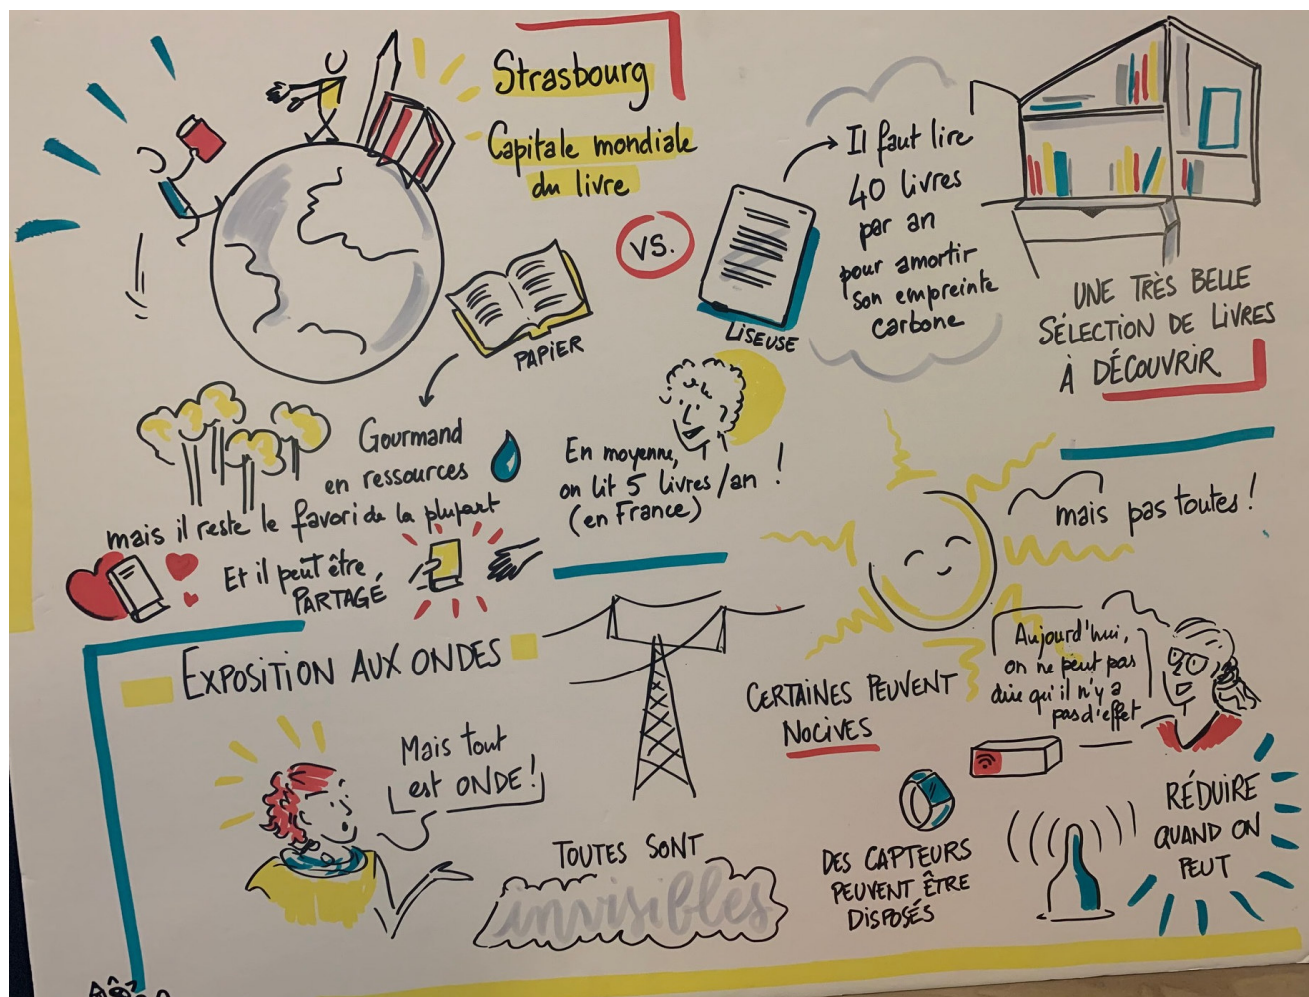 Strasbourg
Capitale mondiale
du livre
VS.
PAPIER
LISEUSE
Il faut lire
40 livres
par an
pour amortir
son empreinte
carbone
UNE TRÈS BELLE
SÉLECTION DE LIVRES
À DÉCOUVRIR
Gourmand
en ressources
mais il reste le favori de la plupart
Et il peut être
PARTAGÉ
En moyenne,
on lit 5 livres/an !
(en France)
EXPOSITION AUX ONDES
Mais tout
est ONDE!
TOUTES SONT
invisibles
mais pas toutes!
CERTAINES PEUVENT
NOCIVES
Aujourd'hui,
on ne peut pas
dire qu'il n'y a
pas d'effet
DES CAPTEURS
PEUVENT ÊTRE
DISPOSÉS
RÉDUIRE
QUAND ON
PEUT